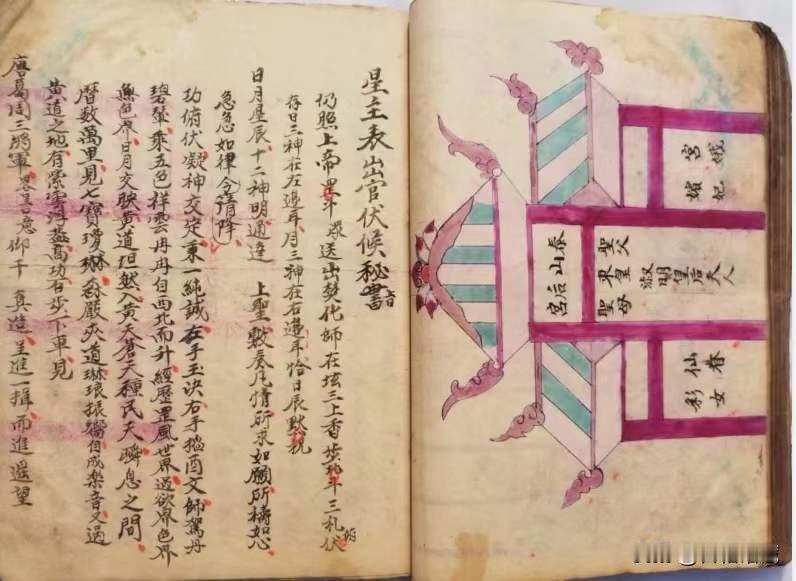 星主表出官伏候秘書音
仍照上帝送出焚化師在坛三上香步北斗三礼伏
存日三神在左边年月三神在右边年恰日辰默执
日月星辰十二神明通達 上聖敷奏凡情所求如願所禱如心
急急如律令清降
功俯伏凝神交定秉一純誠在手玉決右手掐酉文師駕丹
碧輦乘五色祥雲冉冉自西北而升經歷罡風世界過欲界色界
無色界日月交映黄道坦然入黄天蒼天種民天瞬息之間
曆数萬里見七寶瓊琳森嚴夾道琳琅振響自成樂音又過
黄道之地有紫雲浮盖高功右步下車見
唐葛周三將軍 畧言意仰干 真造呈進一揖而進遥望
娥妃
宮嬪
淑明皇后夫人
聖父
東皇
聖母
泰山后宮
仙
女
彩